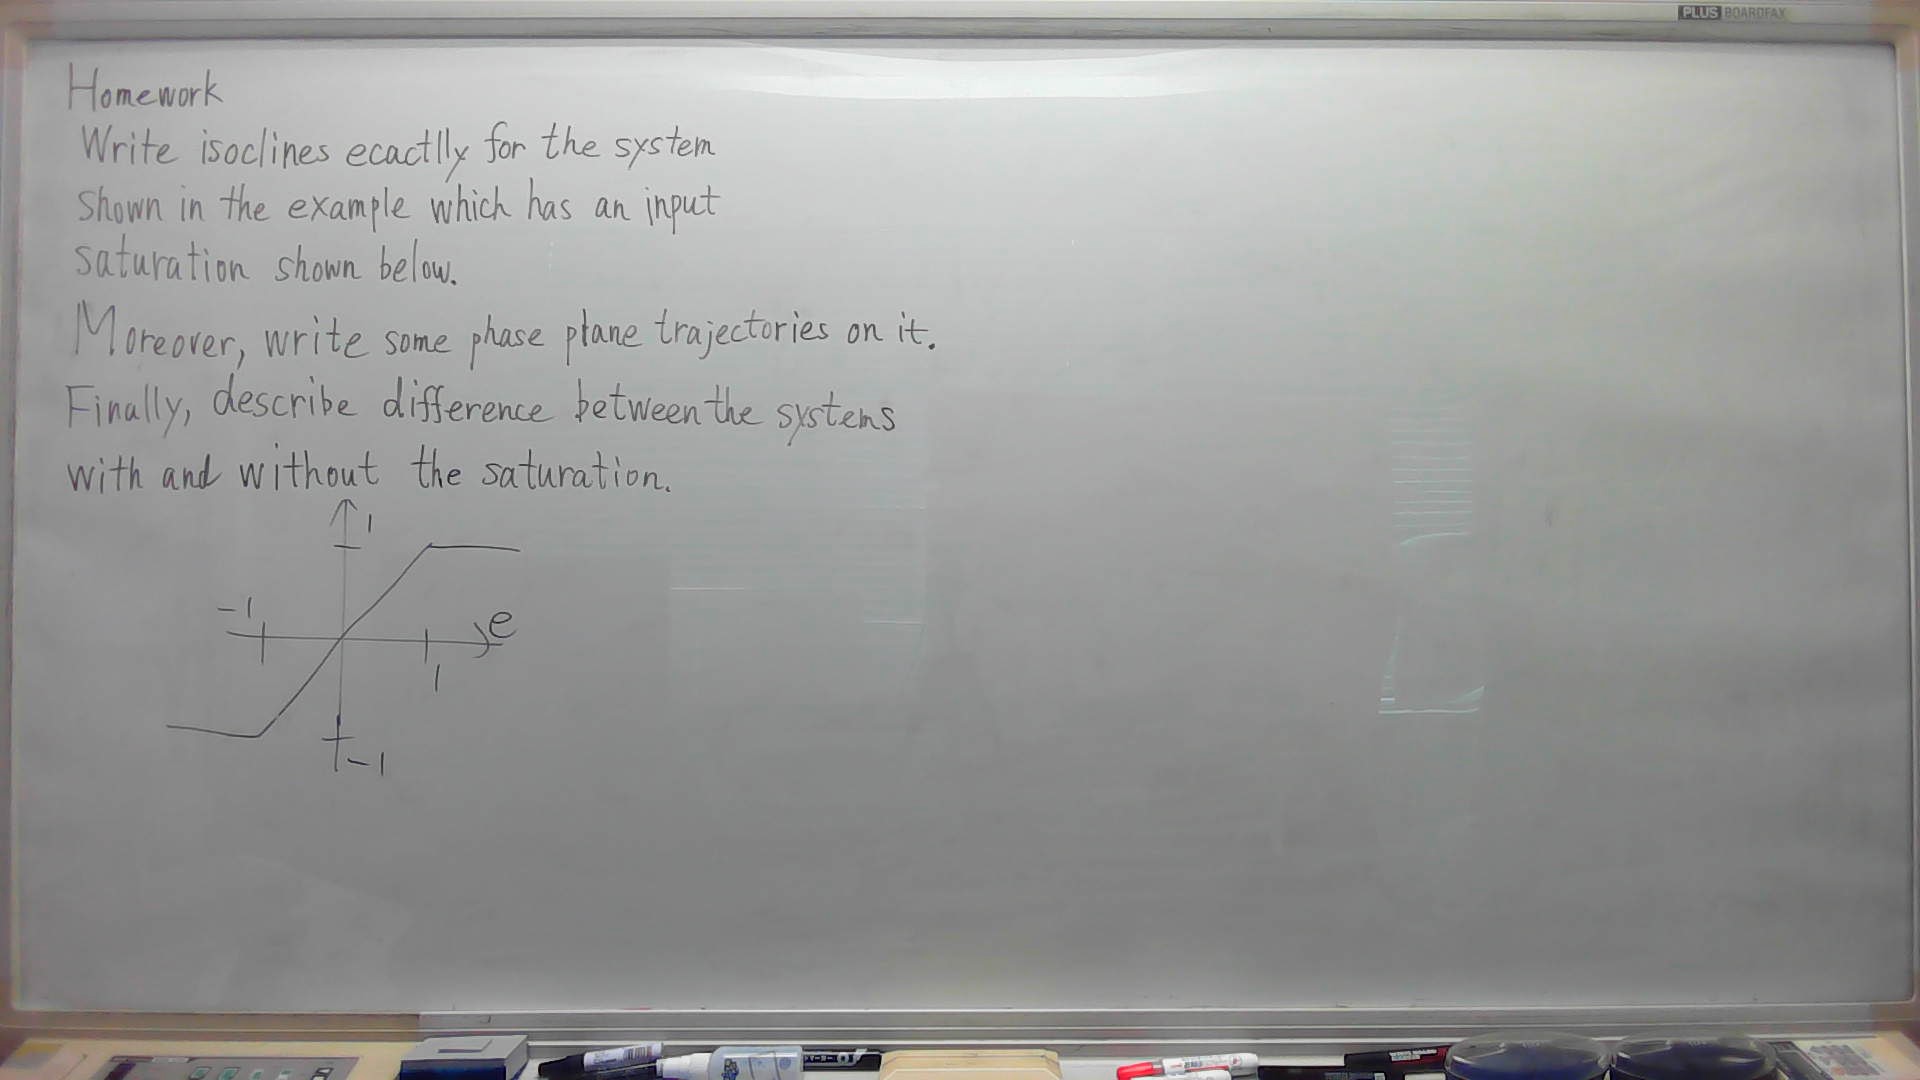 PLUS BOARDFAX
Homework
Write isoclines ecactlly for the system
shown in the example which has an input
saturation shown below.
Moreover, write some phase plane trajectories on it.
Finally, describe difference between the systems
with and without the saturation.
1
-1
e
1
-1